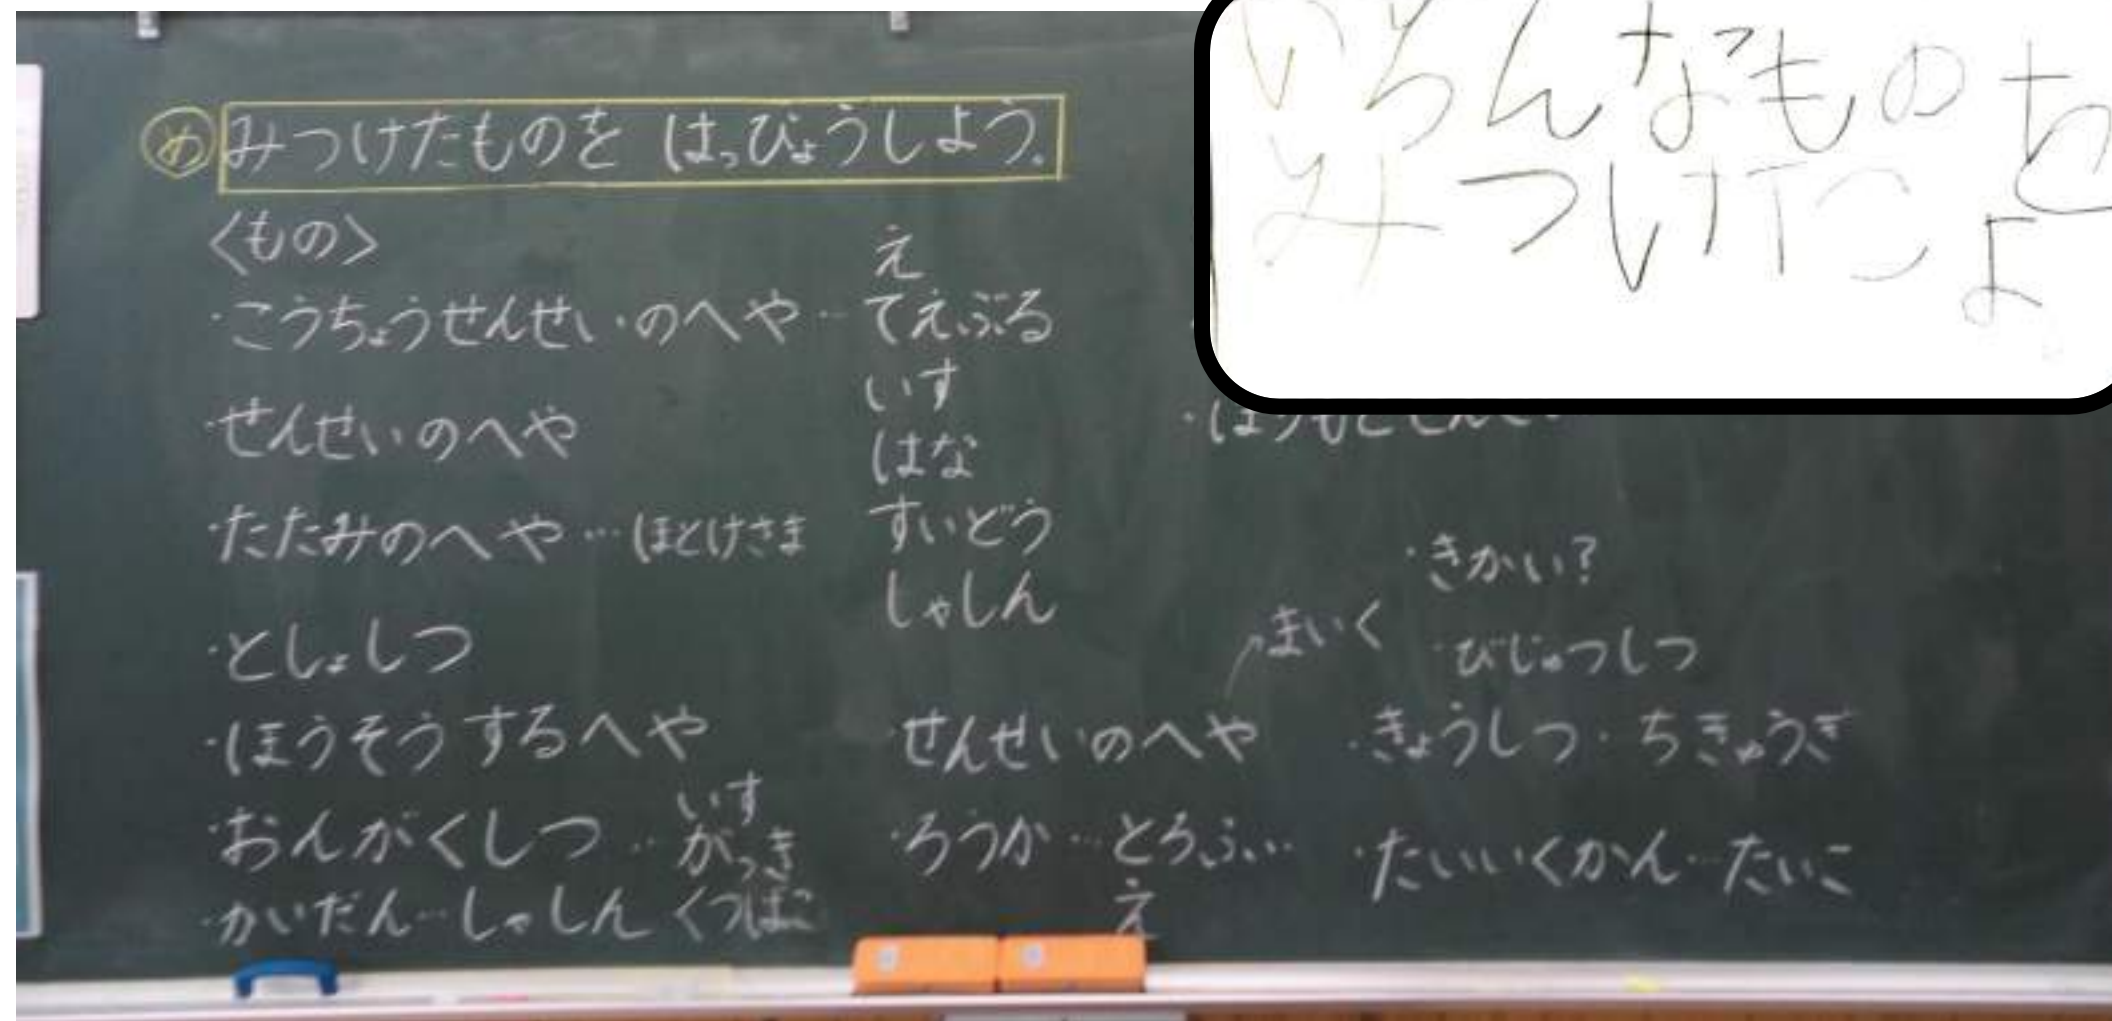 いろんなものを
みつけたよ
め みつけたものを はっぴょうしよう。
〈もの〉
・こうちょうせんせいのへや…え
てえぶる
いす
はな
すいどう
しゃしん
・せんせいのへや
・たたみのへや…ほとけさま
・としょしつ
・ほうそうするへや
・おんがくしつ…いす
がっき
・かいだん…しゃしん くつばこ
・せんせいのへや
まいく
・ろうか…とろふぃー
え
・きかい?
・びじゅつしつ
・きょうしつ・ちきゅうぎ
・たいいくかん…たいこ